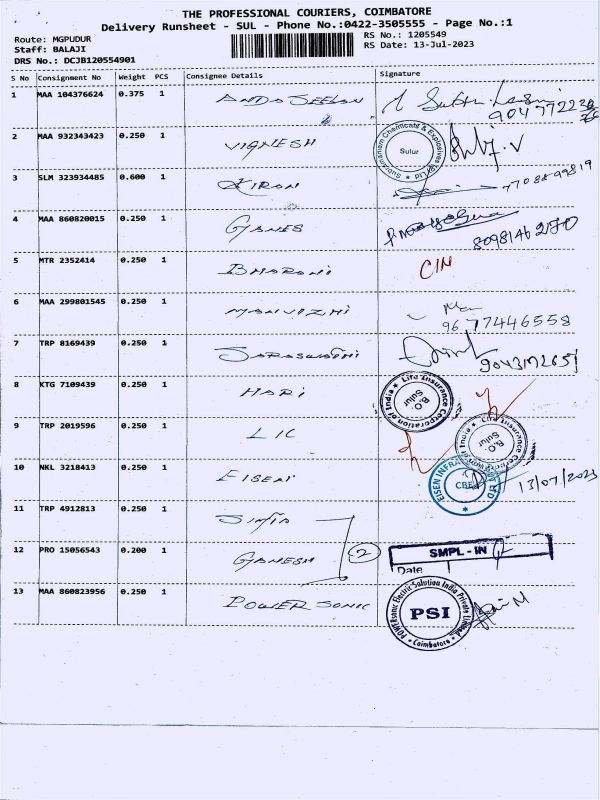 THE PROFESSIONAL COURIERS, COIMBATORE
Delivery Runsheet - SUL - Phone No.:0422-3505555 - Page No.:1
Route: MGPUDUR
Staff: BALAJI
DRS No.: DCJB120554901
RS No.: 1205549
RS Date: 13-Jul-2023
S No Consignment No Weight PCS Consignee Details Signature
1 MAA 104376624 0.375 1
2 MAA 932343423 0.250 1 VIGNESH
Subramaniam Chemicals & Explosives Pvt Ltd
Sulur
3 SLM 323934485 0.600 1 KIRAN
4 MAA 860820015 0.250 1 GANES
5 MTR 2352414 0.250 1 BHARANI CIN
6 MAA 299801545 0.250 1
9677446558
7 TRP 8169439 0.250 1 SARASWATHI
8 KTG 7109439 0.250 1 HARI
Life Insurance Corporation of India
B.O
Sulur
9 TRP 2019596 0.250 1 LIC
Life Insurance Corporation of India
B.O
Sulur
10 NKL 3218413 0.250 1 EISEN
13/07/2023
11 TRP 4912813 0.250 1
12 PRO 15056543 0.200 1 GANESH 2 SMPL - IN
Date
13 MAA 860823956 0.250 1 POWER SONIC
POWERsonic Electric Solution India Private Limited
PSI
Coimbatore